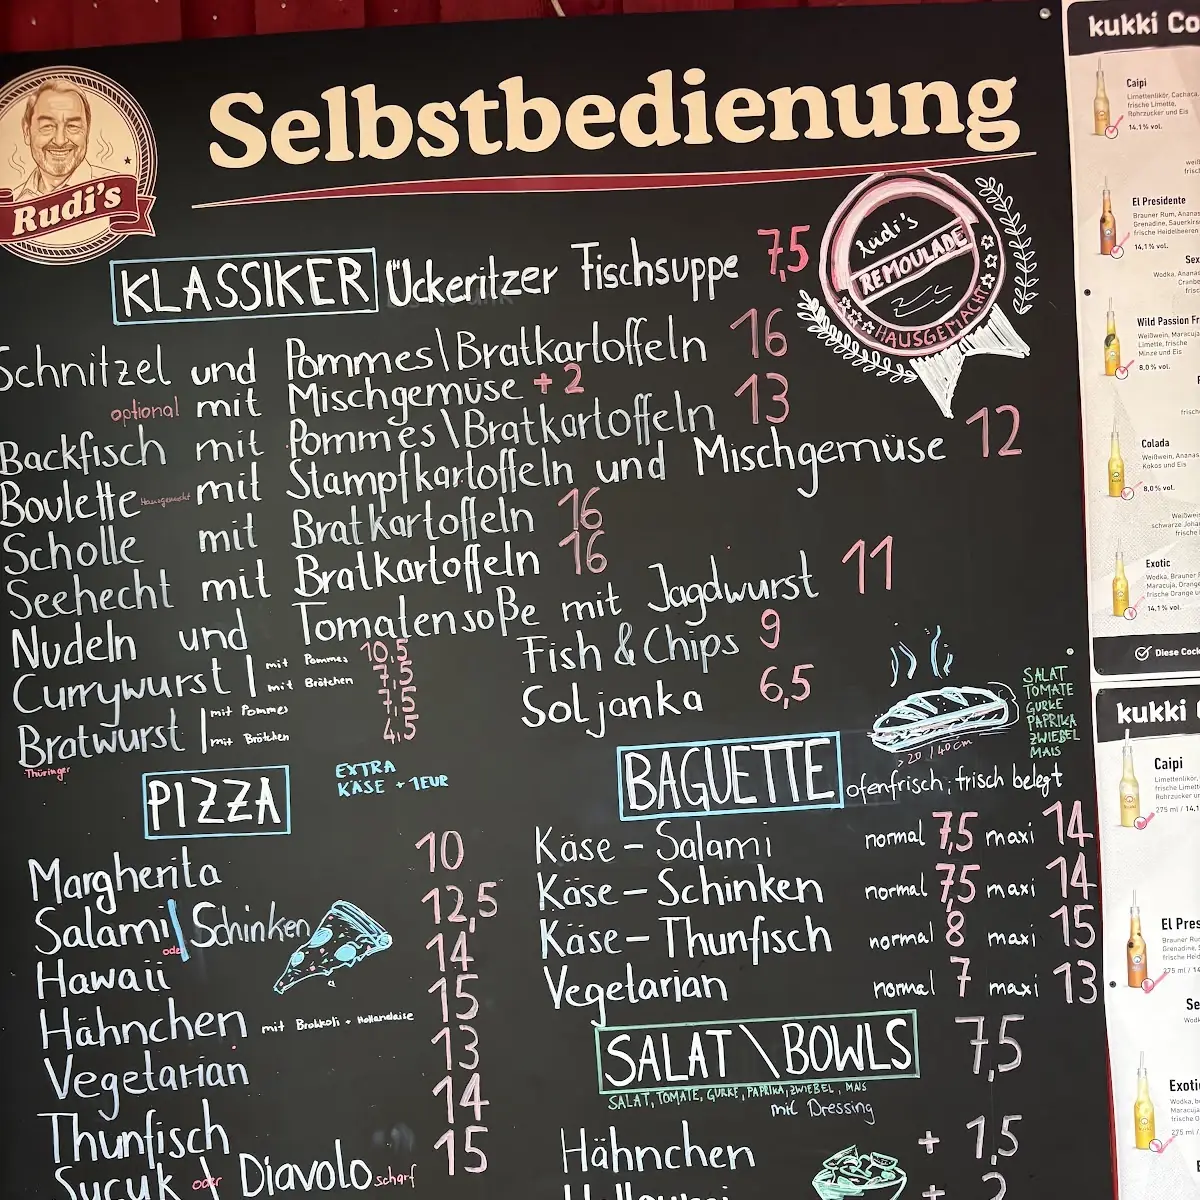 Selbstbedienung
Rudi's
KLASSIKER Ückeritzer Fischsuppe 7,5
Rudi's
REMOULADE
HAUSGEMACHT
Schnitzel und Pommes\Bratkartoffeln 16
optional mit Mischgemüse +2
Backfisch mit Pommes\Bratkartoffeln 13
Boulette Hausgemacht mit Stampfkartoffeln und Mischgemüse 12
Scholle mit Bratkartoffeln 16
Seehecht mit Bratkartoffeln 16
Nudeln und Tomatensoße mit Jagdwurst 11
Currywurst | mit Pommes 10,5
mit Brötchen 7,5
Bratwurst | mit Pommes 7,5
mit Brötchen 4,5
Thüringer
Fish & Chips 9
Soljanka 6,5
SALAT
TOMATE
GURKE
PAPRIKA
ZWIEBEL
MAIS
20 / 40 cm
PIZZA
EXTRA
KÄSE + 1EUR
Margherita 10
Salami oder Schinken 12,5
Hawaii 14
Hähnchen mit Brokkoli + Hollandaise 15
Vegetarian 13
Thunfisch 14
Sucuk oder Diavolo scharf 15
BAGUETTE ofenfrisch, frisch belegt
Käse - Salami normal 7,5 maxi 14
Käse - Schinken normal 7,5 maxi 14
Käse - Thunfisch normal 8 maxi 15
Vegetarian normal 7 maxi 13
SALAT \ BOWLS 7,5
SALAT, TOMATE, GURKE, PAPRIKA, ZWIEBEL, MAIS
mit Dressing
Hähnchen + 1,5
+ 2
kukki Co
Caipi
Limettenlikör, Cachaca,
frische Limette,
Rohrzucker und Eis
14,1% vol.
El Presidente
Brauner Rum, Ananas
Grenadine,
frische Heidelbeeren
14,1% vol.
Sex
Wodka, Ananas
Wild Passion Fr
Weißwein, Maracuja
Limette, frische
Minze und Eis
8,0% vol.
Colada
Weißwein, Ananas
Kokos und Eis
8,0% vol.
Exotic
Wodka, Brauner
Maracuja, Orange
frische Orange
14,1% vol.
Diese Cock
kukki
Caipi
Limettenlikör,
frische Limette
Rohrzucker
275 ml / 14,1
El Pres
Brauner
Grenadine,
275 ml / 14
Se
Exotic
Wodka,
Maracuja
275 ml /